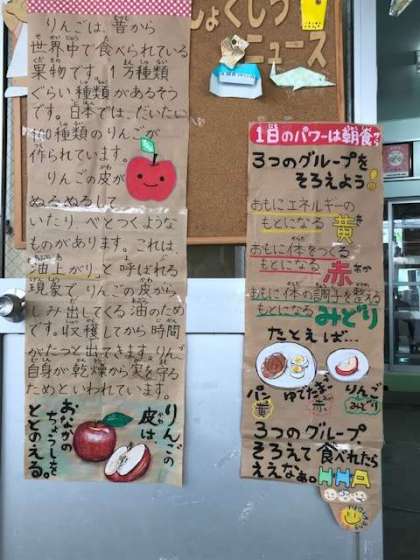 しょくしつ
ニュース
りんごは、昔から
世界中で食べられている
果物です。1万種類
ぐらい種類があるそう
です。日本では、だいたい
100種類のりんごが
作られています。
りんごの皮が
ぬるぬるして
いたり、べとつくような
ものがあります。これは
油上がりと呼ばれる
現象でりんごの皮から
しみ出してくる油のため
です。収穫してから時間
がたつと出てきます。りんご
自身が乾燥から実を守る
ためといわれています。
りんごの
皮は
おなかの
ちょうしを
ととのえる。
1日のパワーは朝食から
3つのグループを
そろえよう!
おもにエネルギーの
もとになる 黄
おもに体をつくる
もとになる 赤
おもに体の調子を整える
もとになる みどり
たとえば…
パン ゆでたまご りんご
黄 赤 みどり
3つのグループ
そろえて食べれたら
ええなぁ。